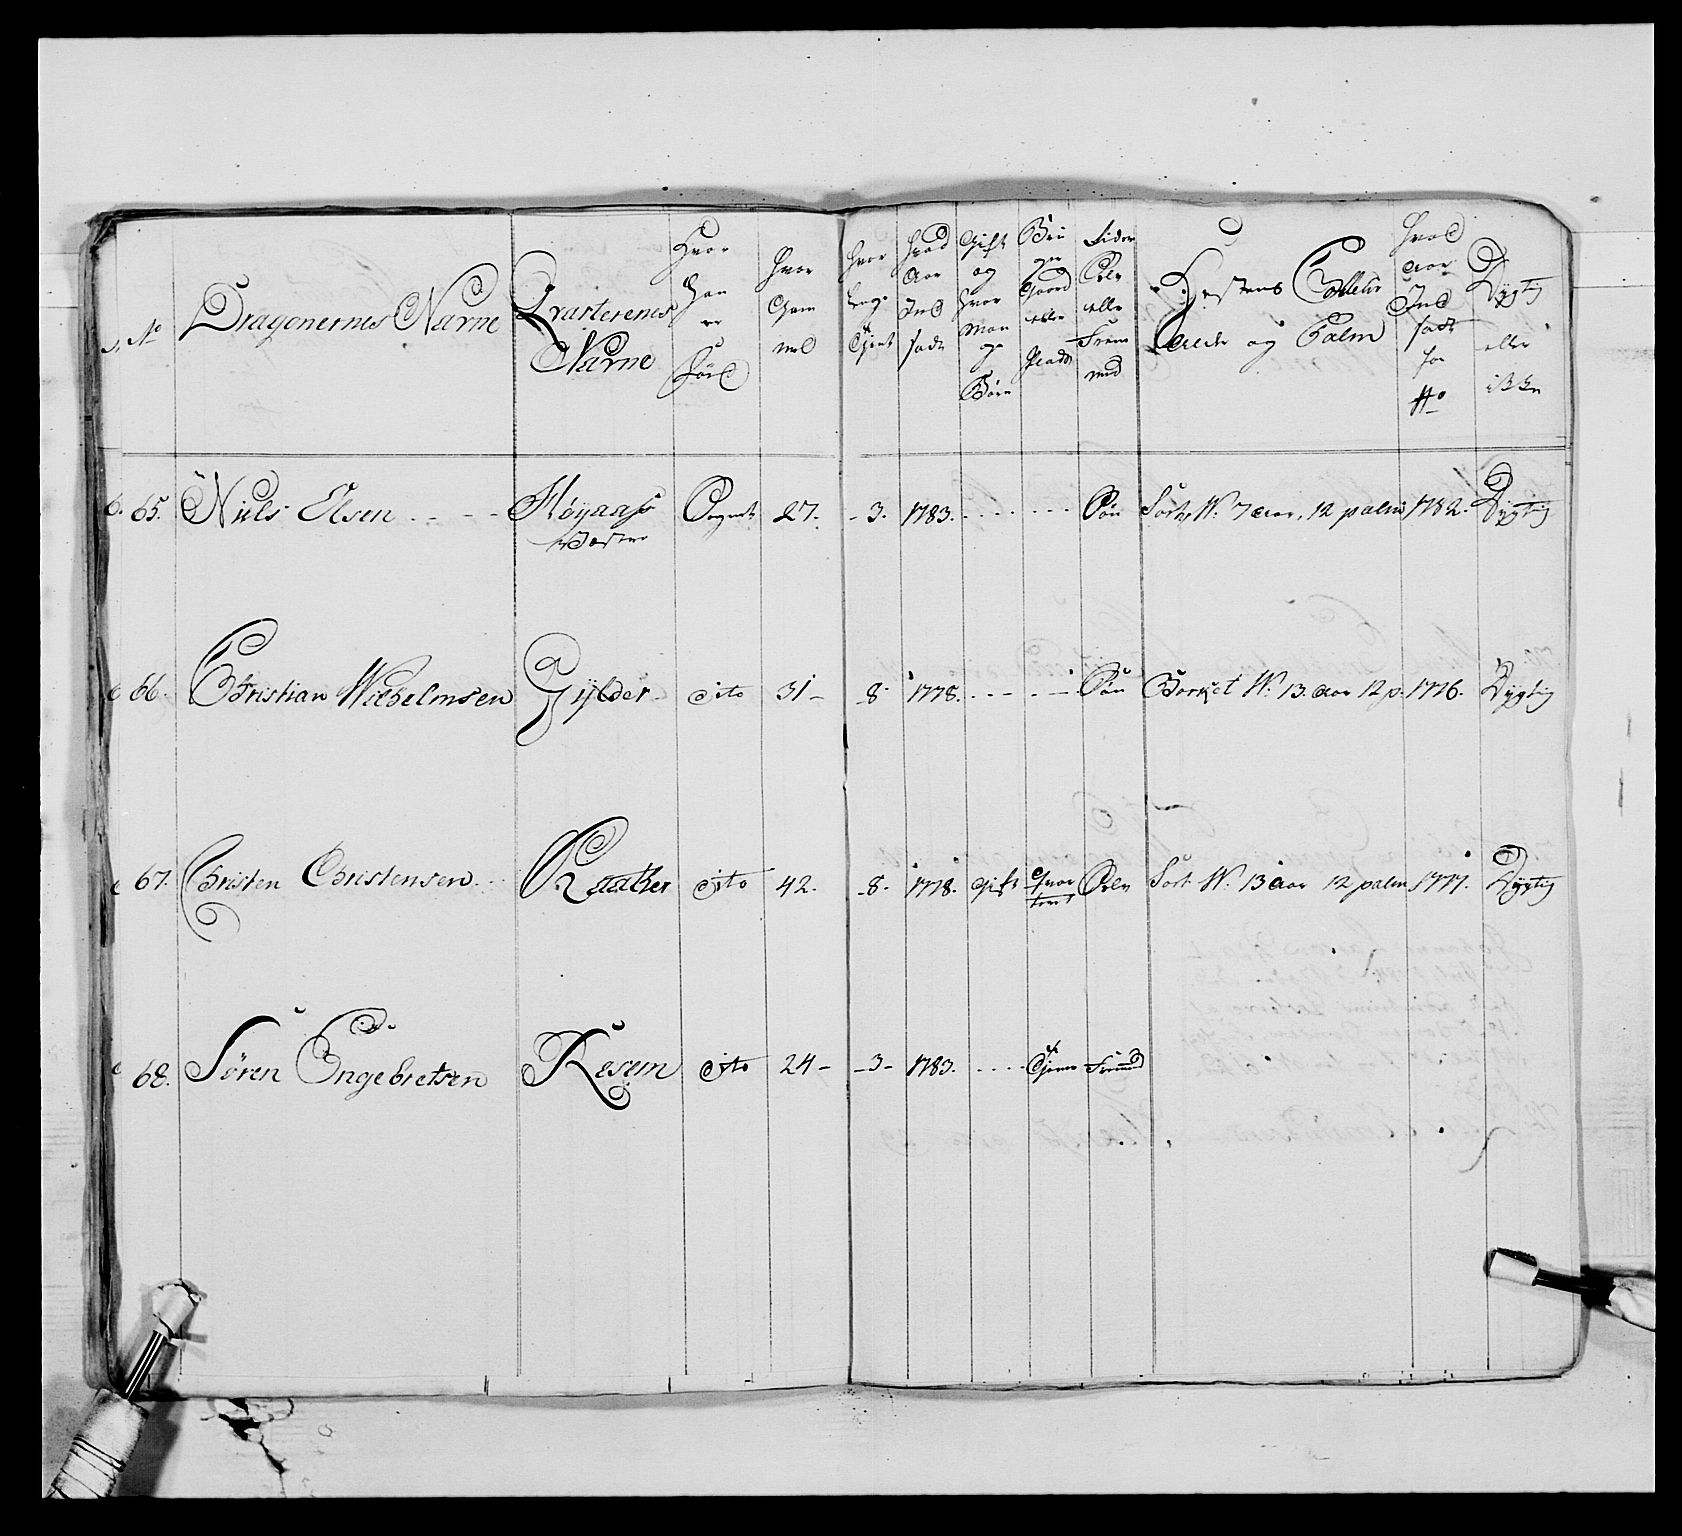 No
Dragonernes Navne
Qvarterenes
Navne
Hvor
han
er
Föd
hvor
Gam
mel
hvor
lenge
Tjent
hvad
Aar
Ind
sadt
Gift
og
hvor
man
ge
Börn
Bru
ger
Gaard
eller
Plads
Finder
Selv
eller
Frem
med
Hestens Colleur
Alder og Palm
hvad
Aar
Ind
sadt
for
No
Dygtig
eller
ikke
65. Niels Olsen Höyaas 27. 3. 1783. Sön Sort, W. 7 Aar, 12 palm 1782. Dygtig
66. Christian Wilhelmsen Gylder dito 31 8 1778. Sön Borket W. 13. Aar 12 p. 1776. Dygtig
67. Christen Christensen dito 42. 8. 1778. Gift Selv Sort W. 13 Aar 12 palm 1777. Dygtig
68. Sören Engebretsen dito 24 3 1783. Tjener Fremmed